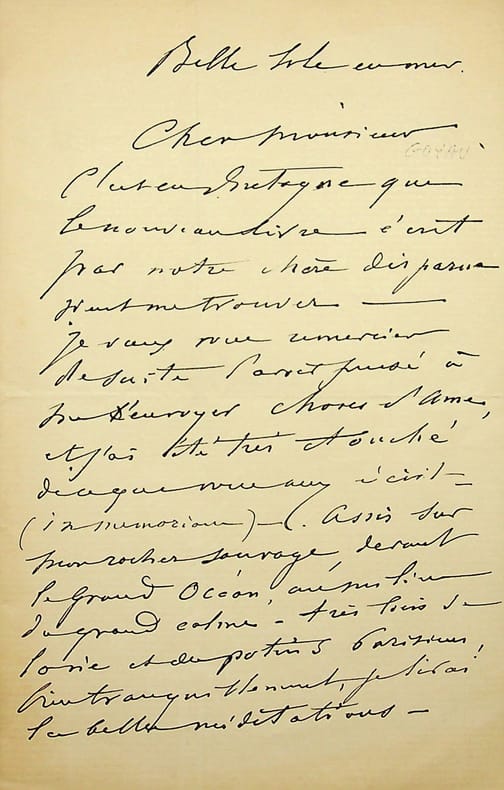 Belle Isle en mer.
Cher Monsieur
C'est en Bretagne que
le nouveau livre écrit
par notre chère disparue
vient me trouver —
je veux vous remercier
de suite d'avoir pensé à
me l'envoyer choses d'âme,
et j'ai été très touché
de ce que vous avez écrit —
(in memoriam) — (. Assis sur
mon rocher sauvage, devant
le grand Océan, au milieu
du grand calme — très loin de
la vie et des potins Parisiens,
bien tranquillement, je lirai
la belle méditations —